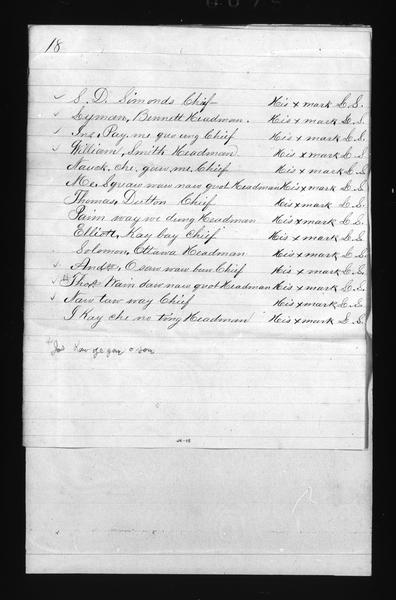 18
S. D. Simonds Chief His x mark L.S.
Lyman, Bennett Headman. His x mark L.S.
Ins, Pay, me quo ung Chief His x mark L.S
William, Smith Headman His x mark L S
Nauck, che, gaw, me, Chief His x mark L S.
Me, Squaw waw naw quot Headman His x mark L.S.
Thomas, Dutton Chief His x mark L.S.
Paim way we dung Headman His x mark L.S.
Elliott, Kay bay Chief His x mark L.S.
Solomon, Ottawa Headman His x mark L.S.
And, O saw waw bun Chief His x mark L.S.
Thos Wain daw naw quot Headman His x mark L.S.
Naw taw way Chief His x mark L.S.
I Kay che no ting Headman His x mark L.S.